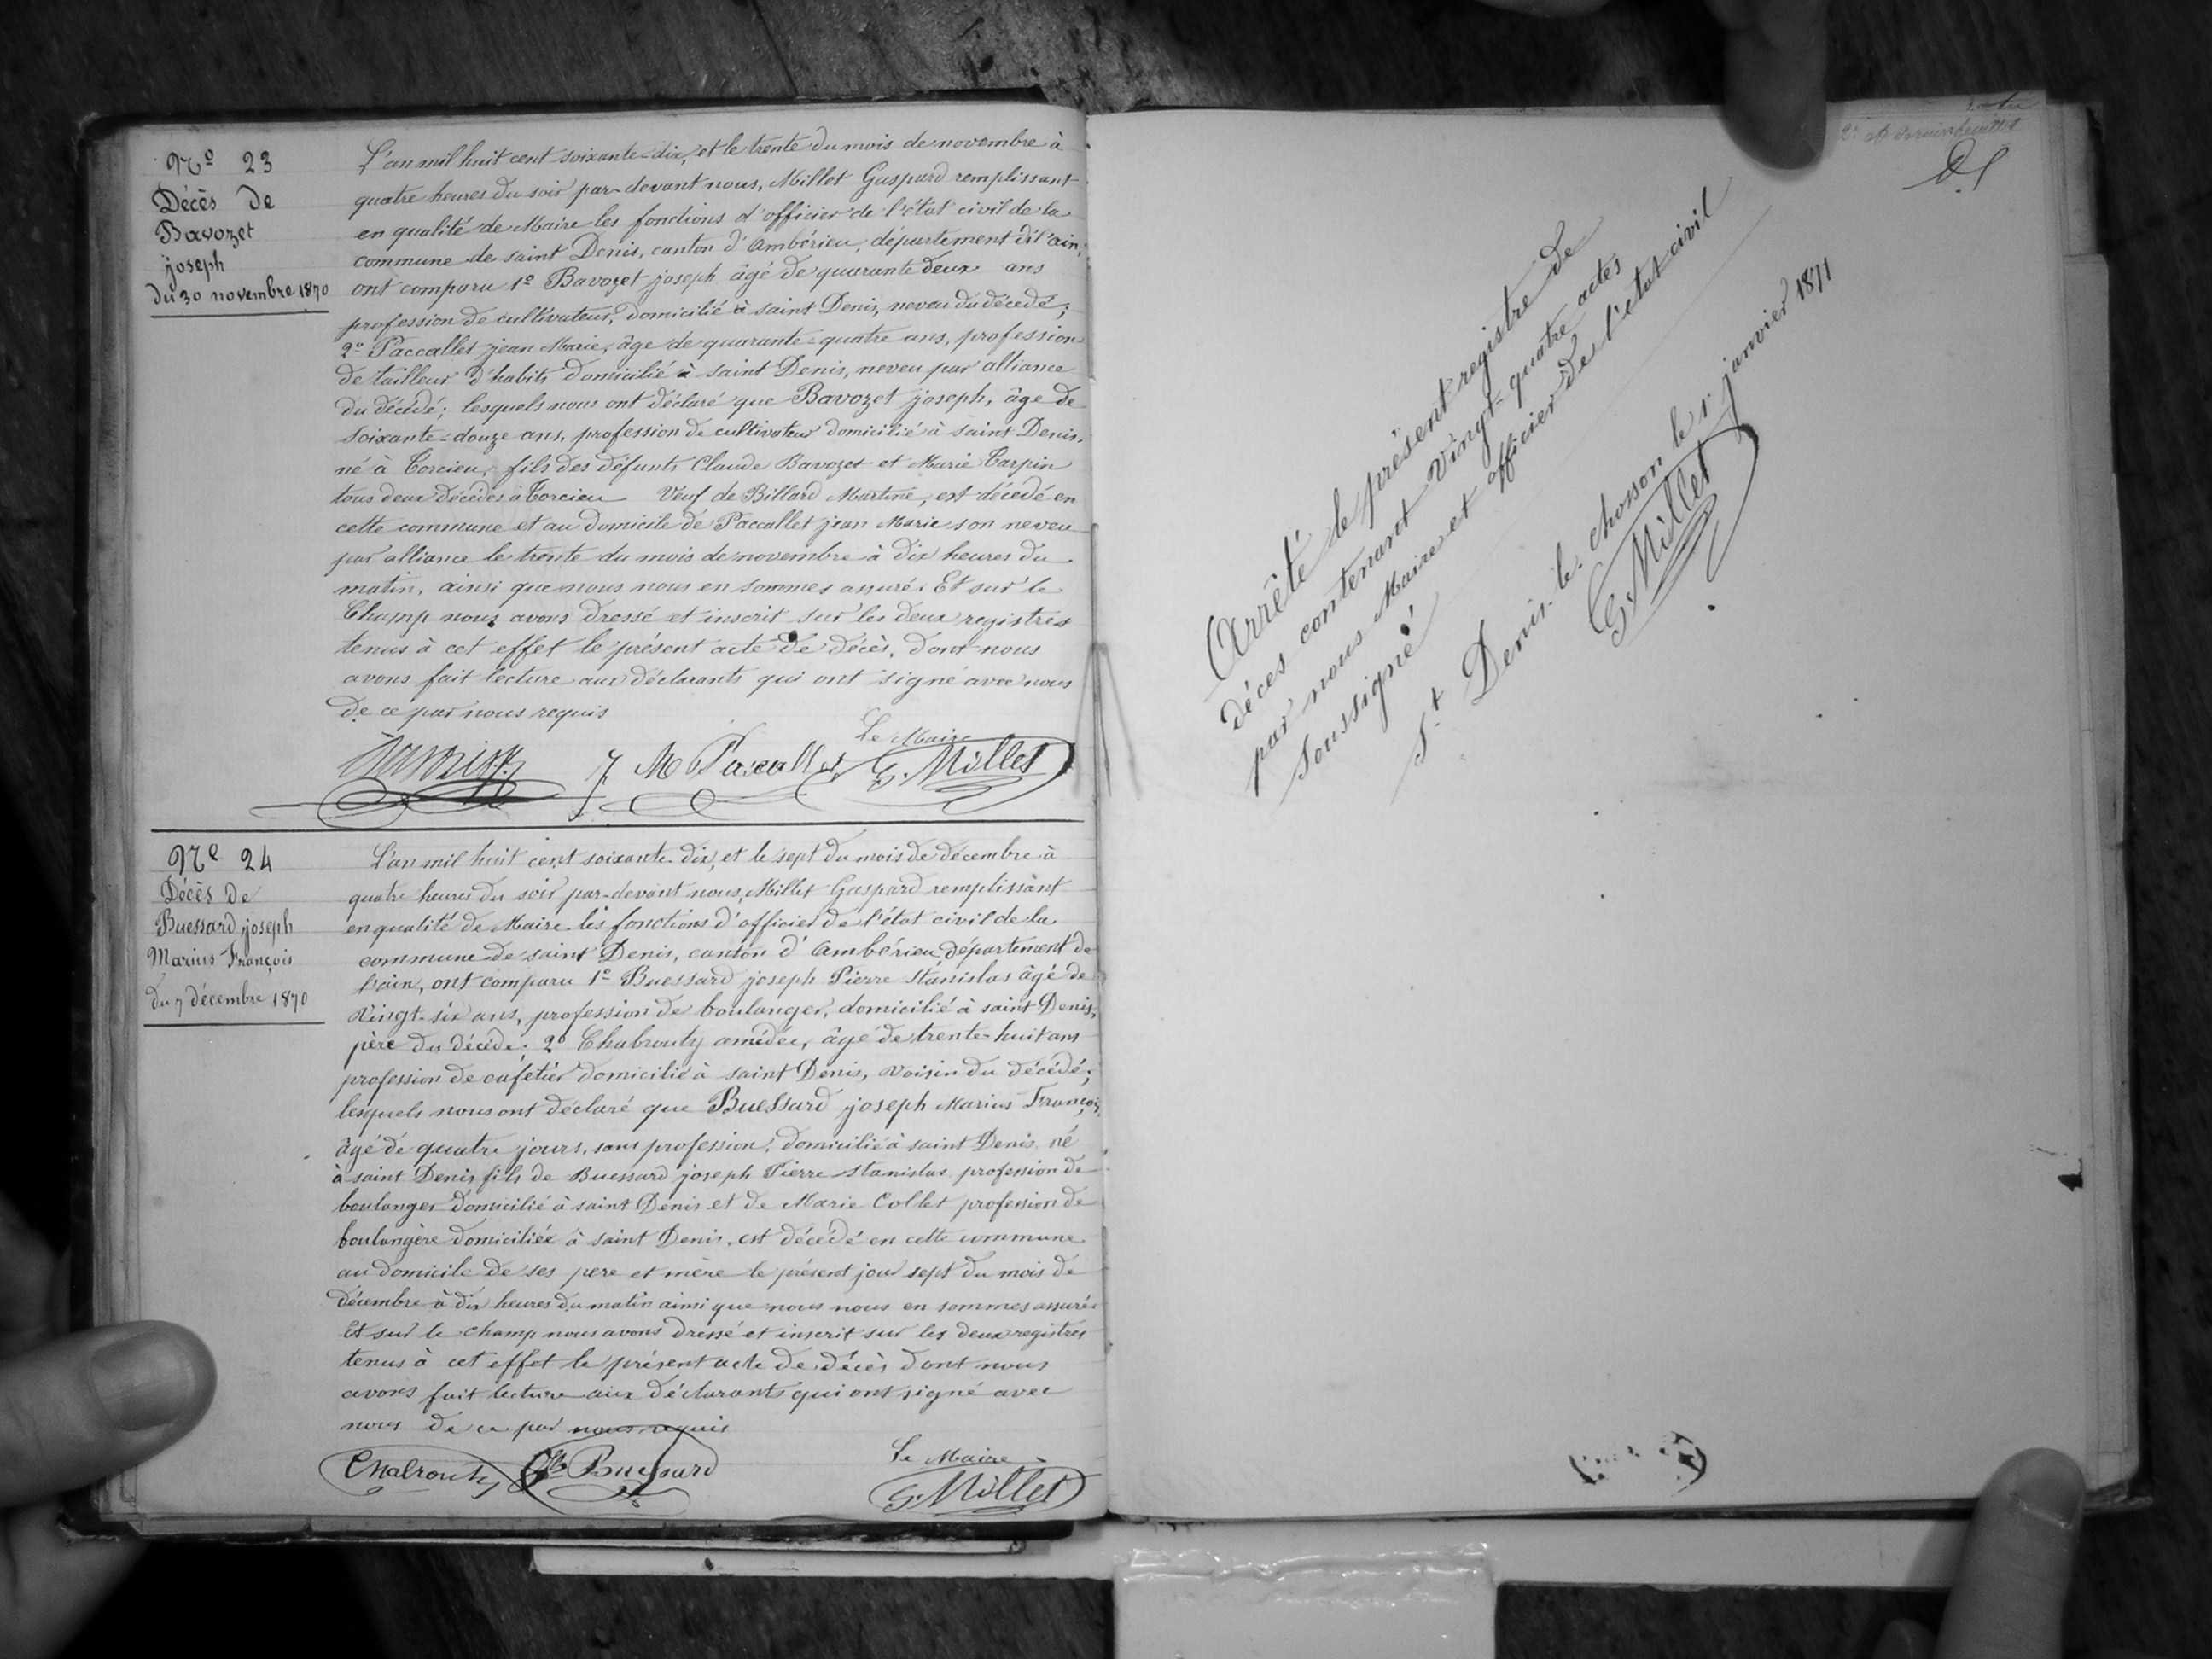 Nº 23
Décès de
Bavozet
joseph
du 30 novembre 1870
L'an mil huit cent soixante-dix, et le trente du mois de novembre à
quatre heures du soir par-devant nous, Millet Gaspard remplissant
en qualité de Maire les fonctions d'officier de l'état civil de la
commune de saint Denis, canton d'Ambérieu, département de l'ain,
ont comparu 1º Bavozet joseph âgé de quarante deux ans
profession de cultivateur, domicilié à saint Denis, neveu du décédé;
2º Paccallet jean Marie, âge de quarante-quatre ans, profession
de tailleur d'habits domicilié à saint Denis, neveu par alliance
du décédé; lesquels nous ont déclaré que Bavozet joseph, âge de
soixante-douze ans, profession de cultivateur domicilié à saint Denis,
né à Torcieu, fils des défunts Claude Bavozet et Marie Carpin
tous deux décédés à Torcieu Veuf de Billard Martine, est décédé en
cette commune et au domicile de Paccallet jean Marie son neveu
par alliance le trente du mois de novembre à dix heures du
matin, ainsi que nous nous en sommes assuré. Et sur le
Champ nous avons dressé et inscrit sur les deux registres
tenus à cet effet le présent acte de décès, dont nous
avons fait lecture aux déclarants qui ont signé avec nous
de ce par nous requis
Le Maire
J M Paccallet G. Millet
Nº 24
Décès de
Buessard joseph
Marius François
du 7 décembre 1870
L'an mil huit cent soixante-dix, et le sept du mois de décembre à
quatre heures du soir par-devant nous, Millet Gaspard remplissant
en qualité de Maire les fonctions d'officier de l'état civil de la
commune de saint Denis, canton d'Ambérieu département de
l'ain, ont comparu 1º Buessard joseph Pierre Stanislas âgé de
Vingt-six ans, profession de boulanger, domicilié à saint Denis,
père du décédé; 2º Chabrouty amédée, âgé de trente-huit ans
profession de cafetier domicilié à saint Denis, voisin du décédé;
lesquels nous ont déclaré que Buessard joseph Marius François,
âgé de quatre jours, sans profession, domicilié à saint Denis né
à saint Denis fils de Buessard joseph Pierre stanislas profession de
boulanger domicilié à saint Denis et de Marie Collet profession de
boulangère domiciliée à saint Denis, est décédé en cette commune
au domicile de ses pere et mère le présent jour sept du mois de
décembre à dix heures du matin ainsi que nous nous en sommes assuré
Et sur le champ nous avons dressé et inscrit sur les deux registres
tenus à cet effet le présent acte de décès dont nous
avons fait lecture aux déclarants qui ont signé avec
nous de ce par nous requis
Le Maire
Chabrouty Buessard G. Millet
2e et dernier feuillet
Arrêté le présent registre de
décès contenant Vingt-quatre actes
par nous Maire et officier de l'état civil
soussigné
St Denis-le-chosson le 1r janvier 1871
G. Millet